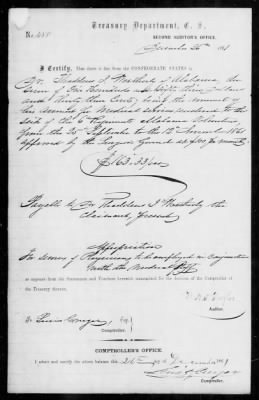 Treasury Department, C. S.
SECOND AUDITOR'S OFFICE,
December 26th 1861
No. 485
I Certify, That there is due from the CONFEDERATE STATES to
Dr. Thaddeus of Alabama, the
Sum of Six Hundred and Sixty three Dollars
and thirty three Cents, being the amount of
his account for Medical services rendered to the
sick of the 6 Regiment Alabama Volunteers
from the 25 September to the 12 November 1861
approved by the Surgeon General at per month
$163.33
Payable to Dr Thaddeus the
claimant, present
Appropriation
For services of Physicians to be employed in Conjunction
with the Medical Staff
as appears from the Statements and Vouchers herewith transmitted for the decision of the Comptroller of
the Treasury thereon.
W. H. S. Taylor
Auditor.
To Lewis Cruger, Esq.,
Comptroller.
COMPTROLLER'S OFFICE.
I admit and certify the above balance this 26th day December 1861
Lewis Cruger
Comptroller.